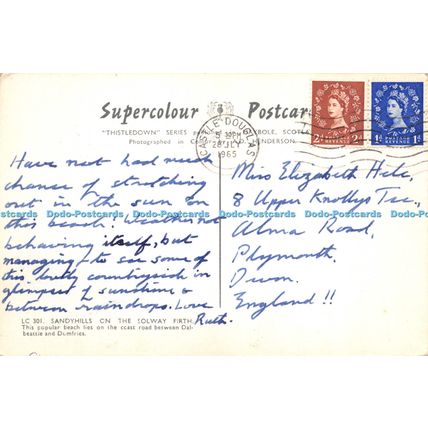 Supercolour Postcard
"THISTLEDOWN" SERIES BOLE, SCOTL
Photographed in C HENDERSON.
CASTLE DOUGLAS
28 JLY
1965
2D 2D
POSTAGE REVENUE
1D 1D
POSTAGE REVENUE
Have not had much
chance of stretching
out in the sun on
this beach. Weather not
behaving itself, but
managing to see some of
this lovely countryside in
glimpses of sunshine &
between raindrops. Love
Ruth.
Miss Elizabeth Hele,
8 Upper Knollys Tce.,
Alma Road,
Plymouth,
Devon.
England !!
Dodo-Postcards Dodo-Postcards Dodo-Postcards Dodo-Postcards
LC 301. SANDYHILLS ON THE SOLWAY FIRTH.
This popular beach lies on the coast road between Dal-
beattie and Dumfries.